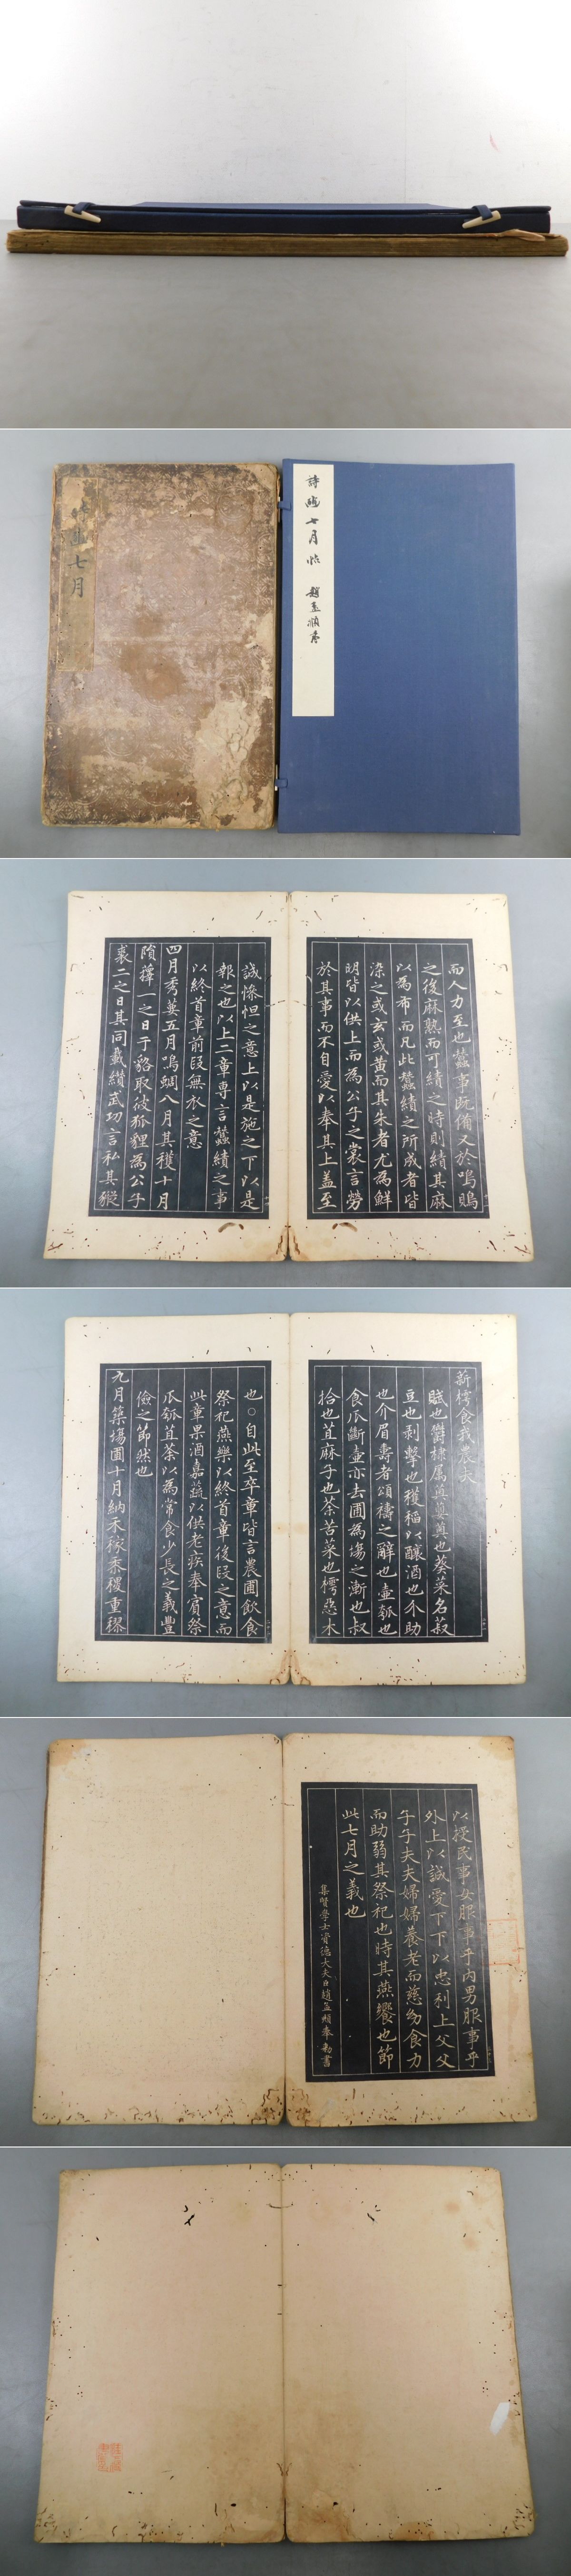 詩豳七月
詩豳七月帖 趙孟頫書
而人力至也蠶事既備又於鳴鵙
之後麻熟而可績之時則績其麻
以為布而凡此蠶績之所成者皆
染之或玄或黃而其朱者尤為鮮
明皆以供上而為公子之裳言勞
於其事而不自愛以奉其上蓋至
誠慘怛之意上以是施之下以是
報之也以上二章專言蠶績之事
以終首章前段無衣之意
四月秀葽五月鳴蜩八月其穫十月
隕蘀一之日于貉取彼狐貍為公子
裘二之日其同載纘武功言私其豵
薪樗食我農夫
賦也鬱棣屬薁蘡薁也葵菜名菽
豆也剥擊也穫稻以釀酒也介助
也介眉壽者頌禱之辭也壺瓠也
食瓜斷壺亦去圃為場之漸也叔
拾也苴麻子也荼苦菜也樗惡木
也○自此至卒章皆言農圃飲食
祭祀燕樂以終首章後段之意而
此章果酒嘉蔬以供老疾奉賓祭
瓜瓠苴荼以為常食少長之義豐
儉之節然也
九月築場圃十月納禾稼黍稷重穋
以授民事女服事乎內男服事乎
外上以誠愛下下以忠利上父父
子子夫夫婦婦養老而慈幼食力
而助弱其祭祀也時其燕饗也節
此七月之義也
集賢學士資德大夫臣趙孟頫奉勅書